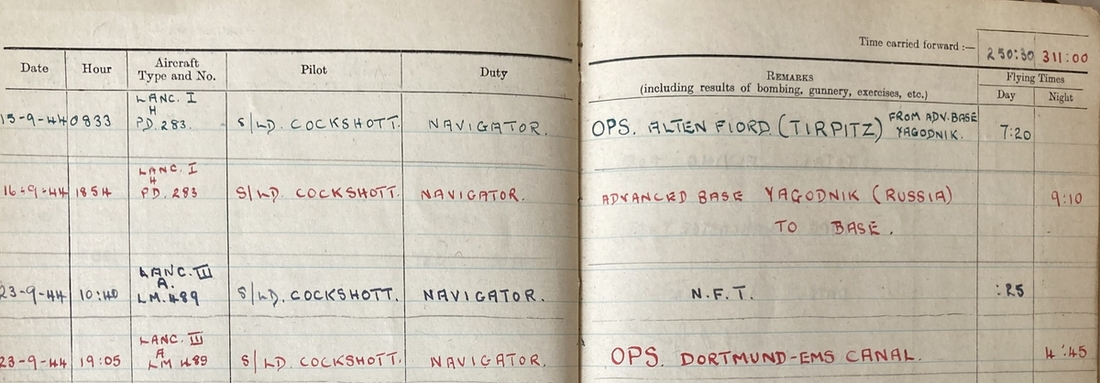 Time carried forward :— 250:30 311:00
Date Hour Aircraft Type and No. Pilot Duty REMARKS (including results of bombing, gunnery, exercises, etc.) Flying Times Day Night
15-9-44 0833 LANC. I H PD. 283. S/LD. COCKSHOTT. NAVIGATOR. OPS. ALTEN FIORD (TIRPITZ) FROM ADV. BASE YAGODNIK. 7:20
16-9-44 1854 LANC. I H PD. 283 S/LD. COCKSHOTT. NAVIGATOR. ADVANCED BASE YAGODNIK (RUSSIA) 9:10
TO BASE.
23-9-44 10:40 LANC. III A. LM. 489 S/LD. COCKSHOTT. NAVIGATOR. N.F.T. :25
23-9-44 19:05 LANC. III A LM 489 S/LD. COCKSHOTT. NAVIGATOR. OPS. DORTMUND-EMS CANAL. 4:45